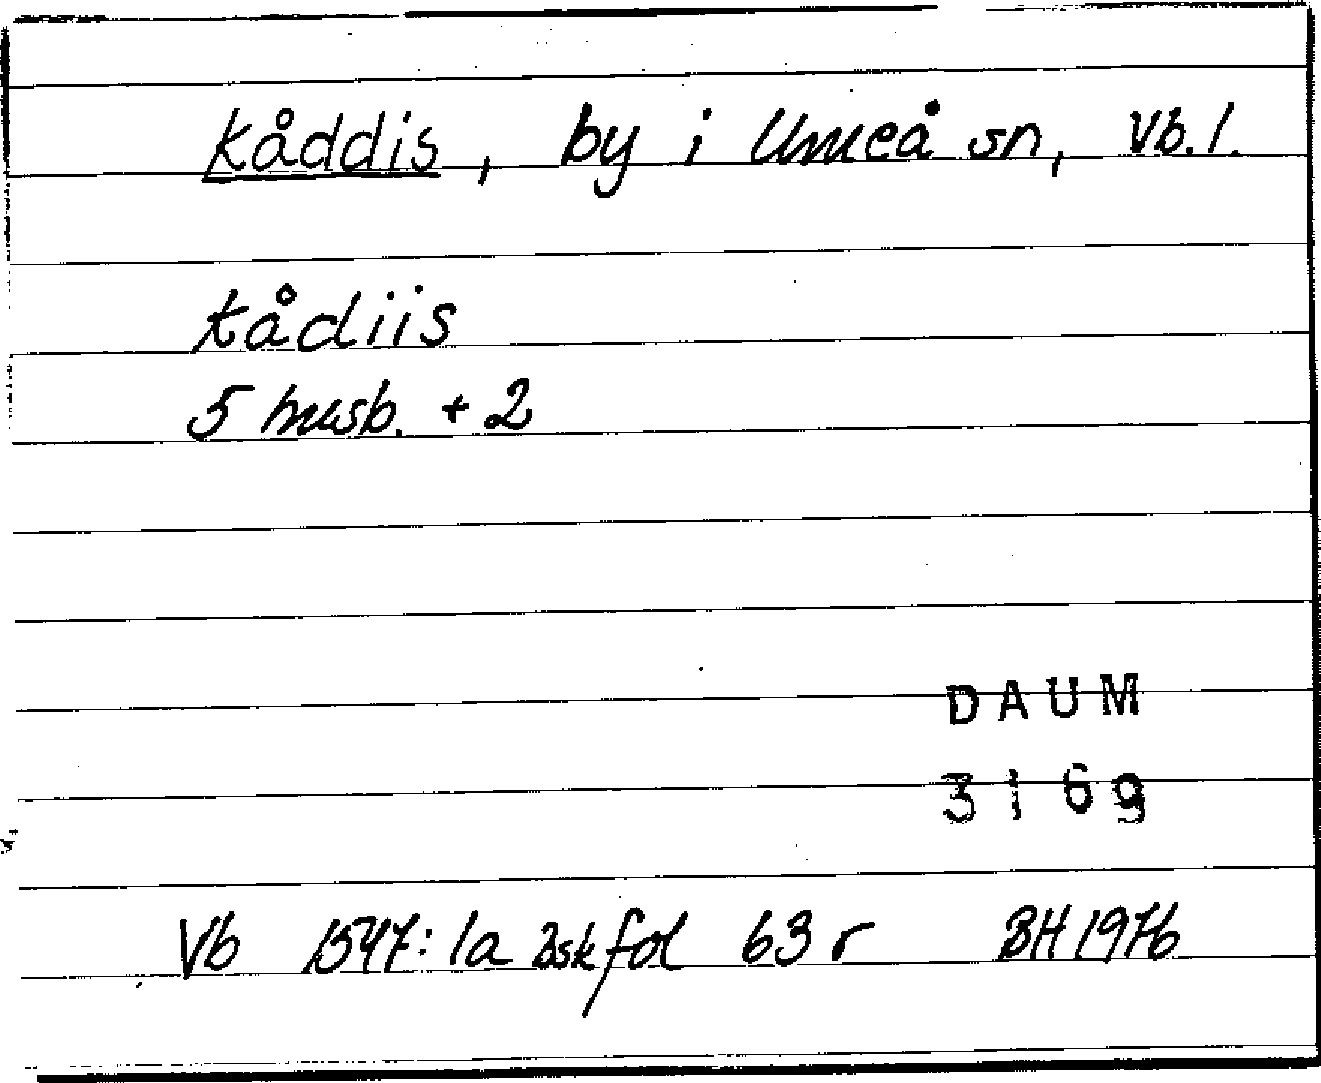 Kåddis, by i Umeå sn, Vb. l.
kådiis
5 husb. + 2
DAUM
3169
Vb 1547: 1a åsk fol 63 r BH 1976